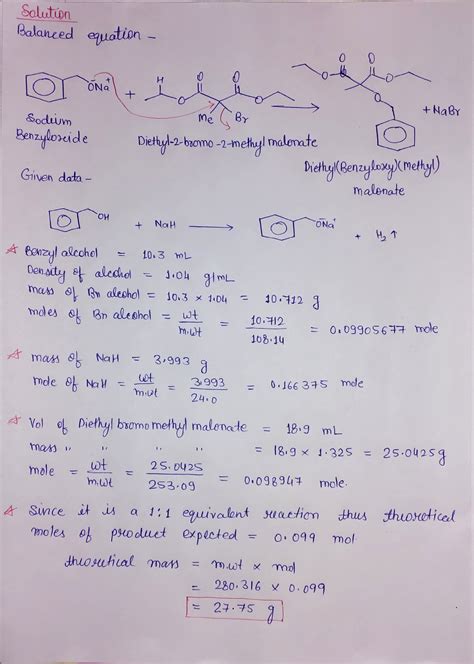 Solution
Balanced equation -
H
O O
O O
O O
ONa+ + O O + NaBr
O
Me Br
Sodium
Benzyloxide
Diethyl-2-bromo-2-methyl malonate
Diethyl(Benzyloxy)(Methyl)
malonate
Given data -
OH + NaH → ONa+ + H2↑
Benzyl alcohol = 10.3 mL
Density of alcohol = 1.04 g/mL
mass of Bn alcohol = 10.3 × 1.04 = 10.712 g
moles of Bn alcohol = wt/m.wt = 10.712/108.14 = 0.09905677 mole
mass of NaH = 3.993 g
mole of NaH = wt/m.wt = 3.993/24.0 = 0.166375 mole
Vol of Diethyl bromo methyl malonate = 18.9 mL
mass ,, ,, ,, = 18.9 × 1.325 = 25.0425g
mole = wt/m.wt = 25.0425/253.09 = 0.098947 mole.
Since it is a 1:1 equivalent reaction thus theoretical
moles of product expected = 0.099 mol
theoretical mass = m.wt × mol
= 280.316 × 0.099
= 27.75 g